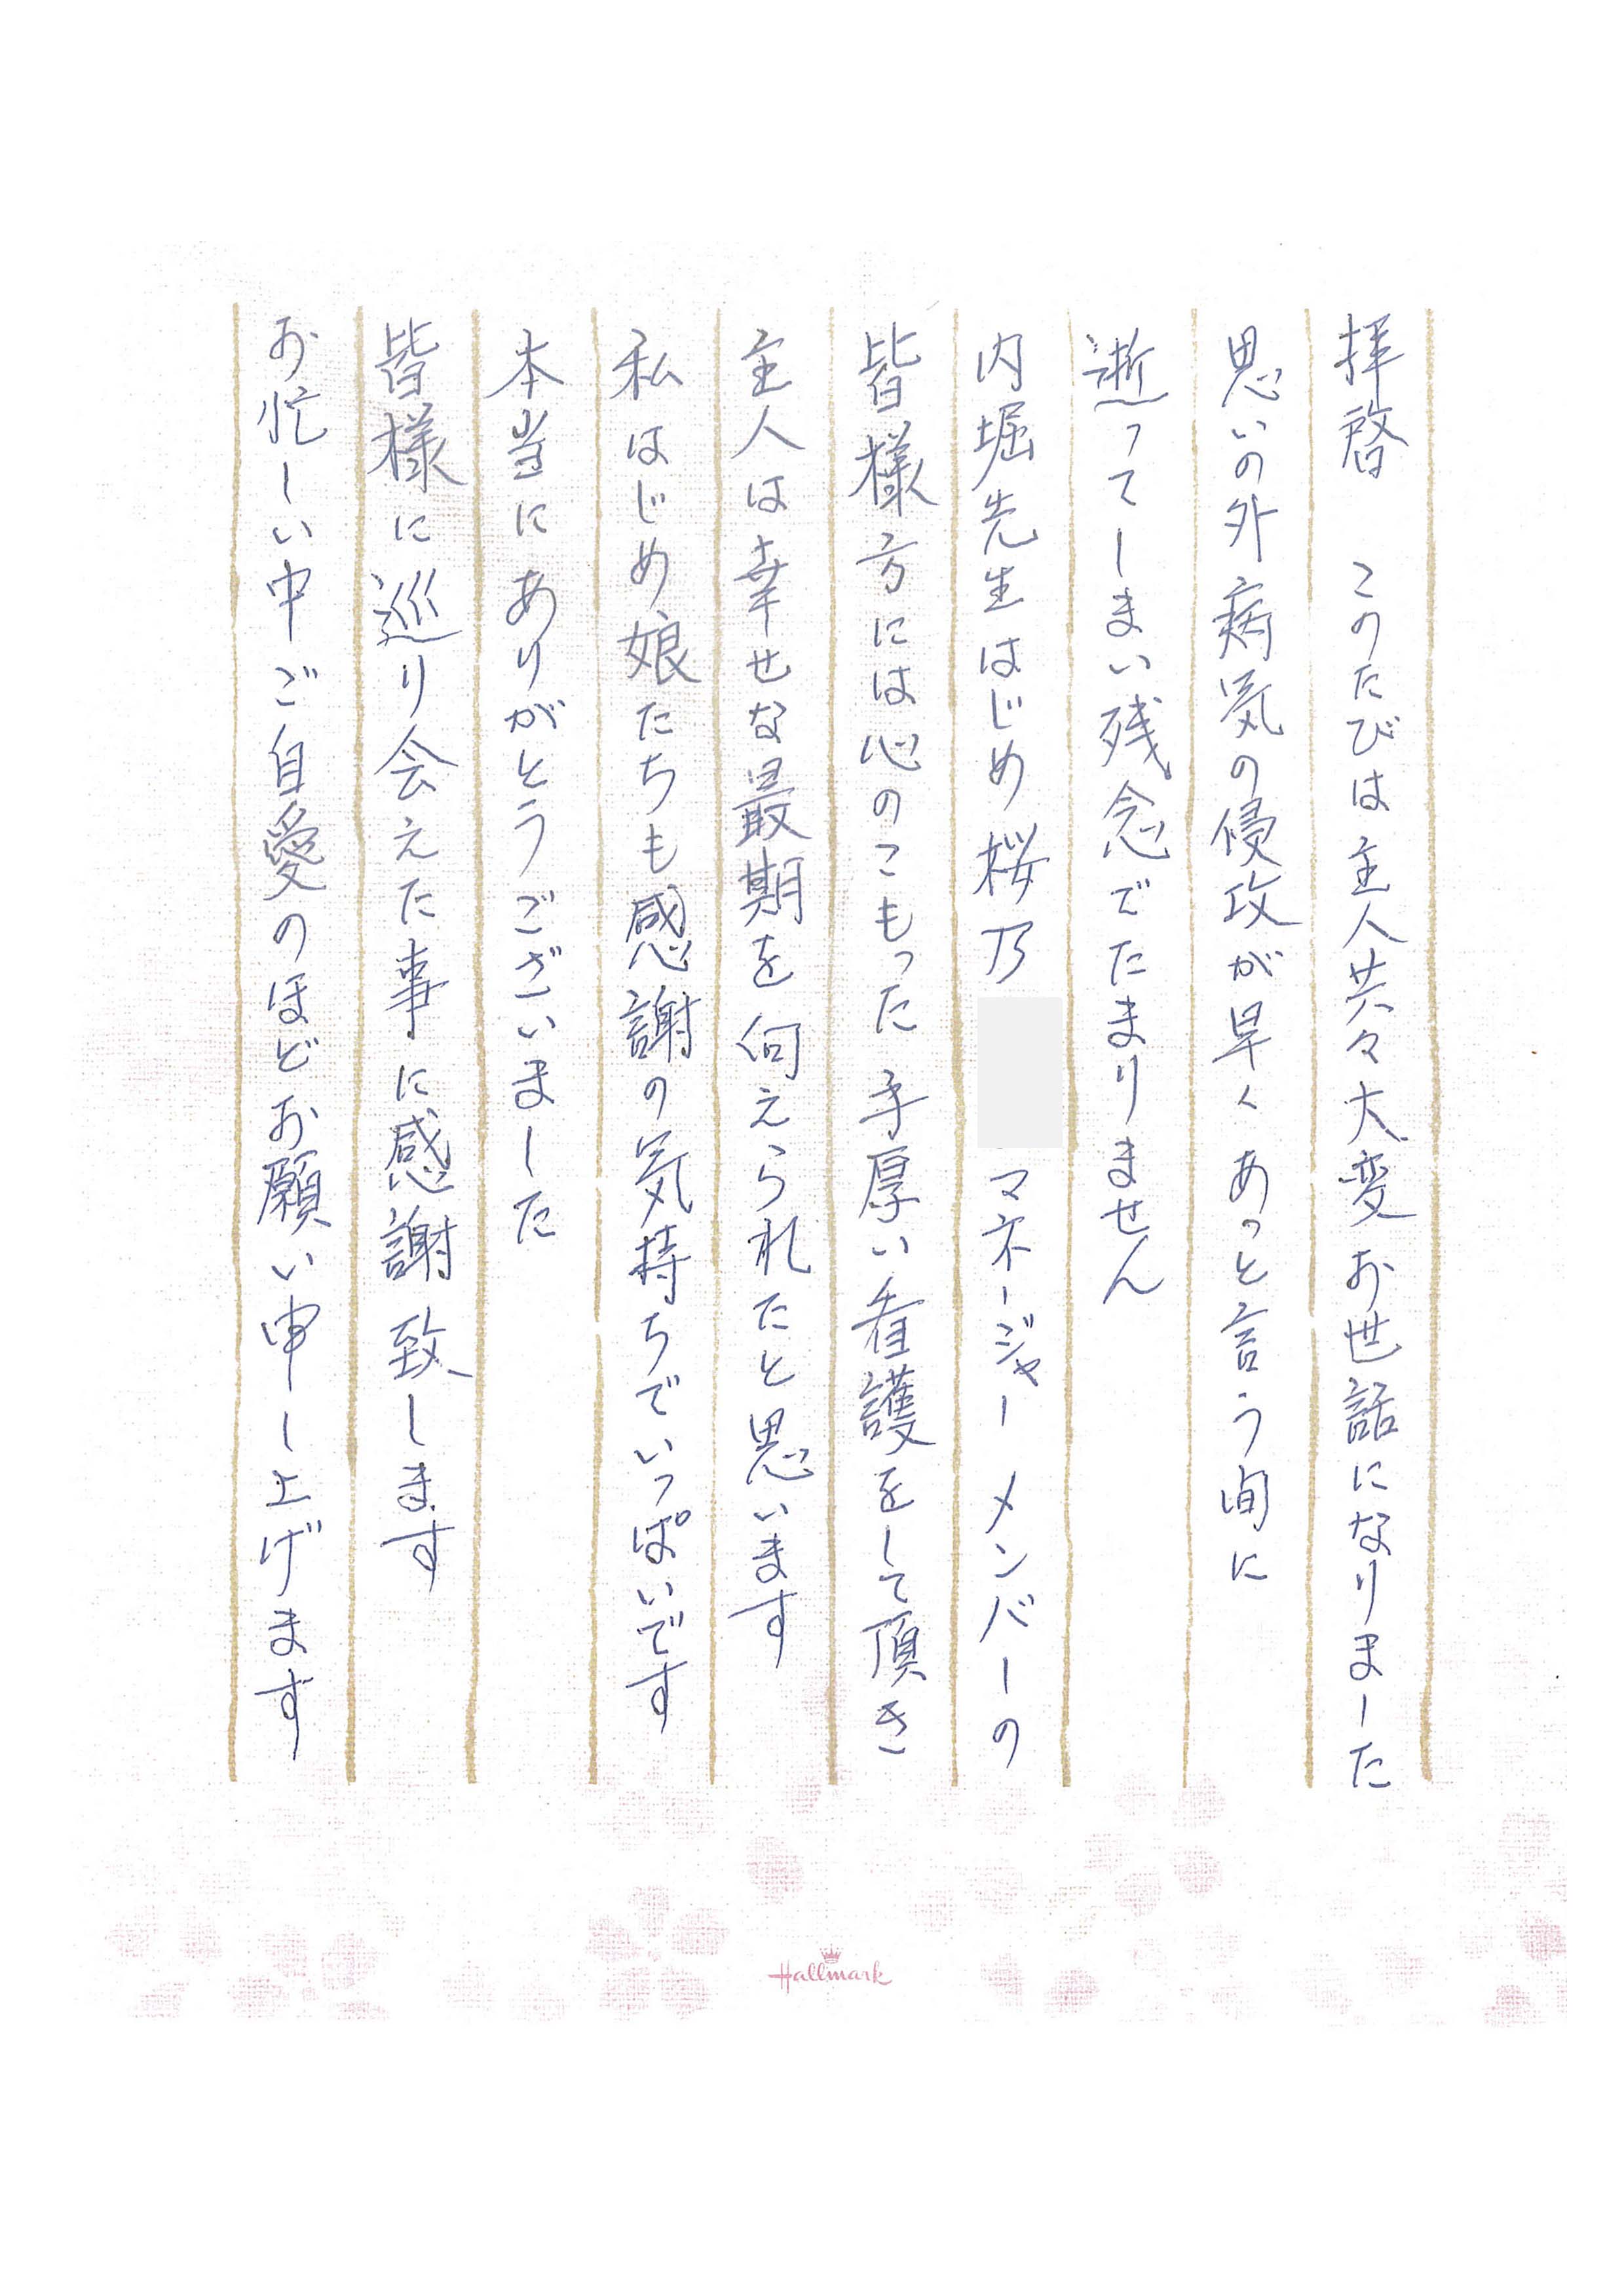 拝啓 このたびは主人共々大変お世話になりました
思いの外病気の侵攻が早くあっと言う間に
逝ってしまい残念でたまりません
内堀先生はじめ桜乃 マネージャー メンバーの
皆様方には心のこもった手厚い看護をして頂き
主人は幸せな最期を伺えられたと思います
私はじめ娘たちも感謝の気持ちでいっぱいです
本当にありがとうございました
皆様に巡り会えた事に感謝致します
お忙しい中ご自愛のほどお願い申し上げます
Hallmark